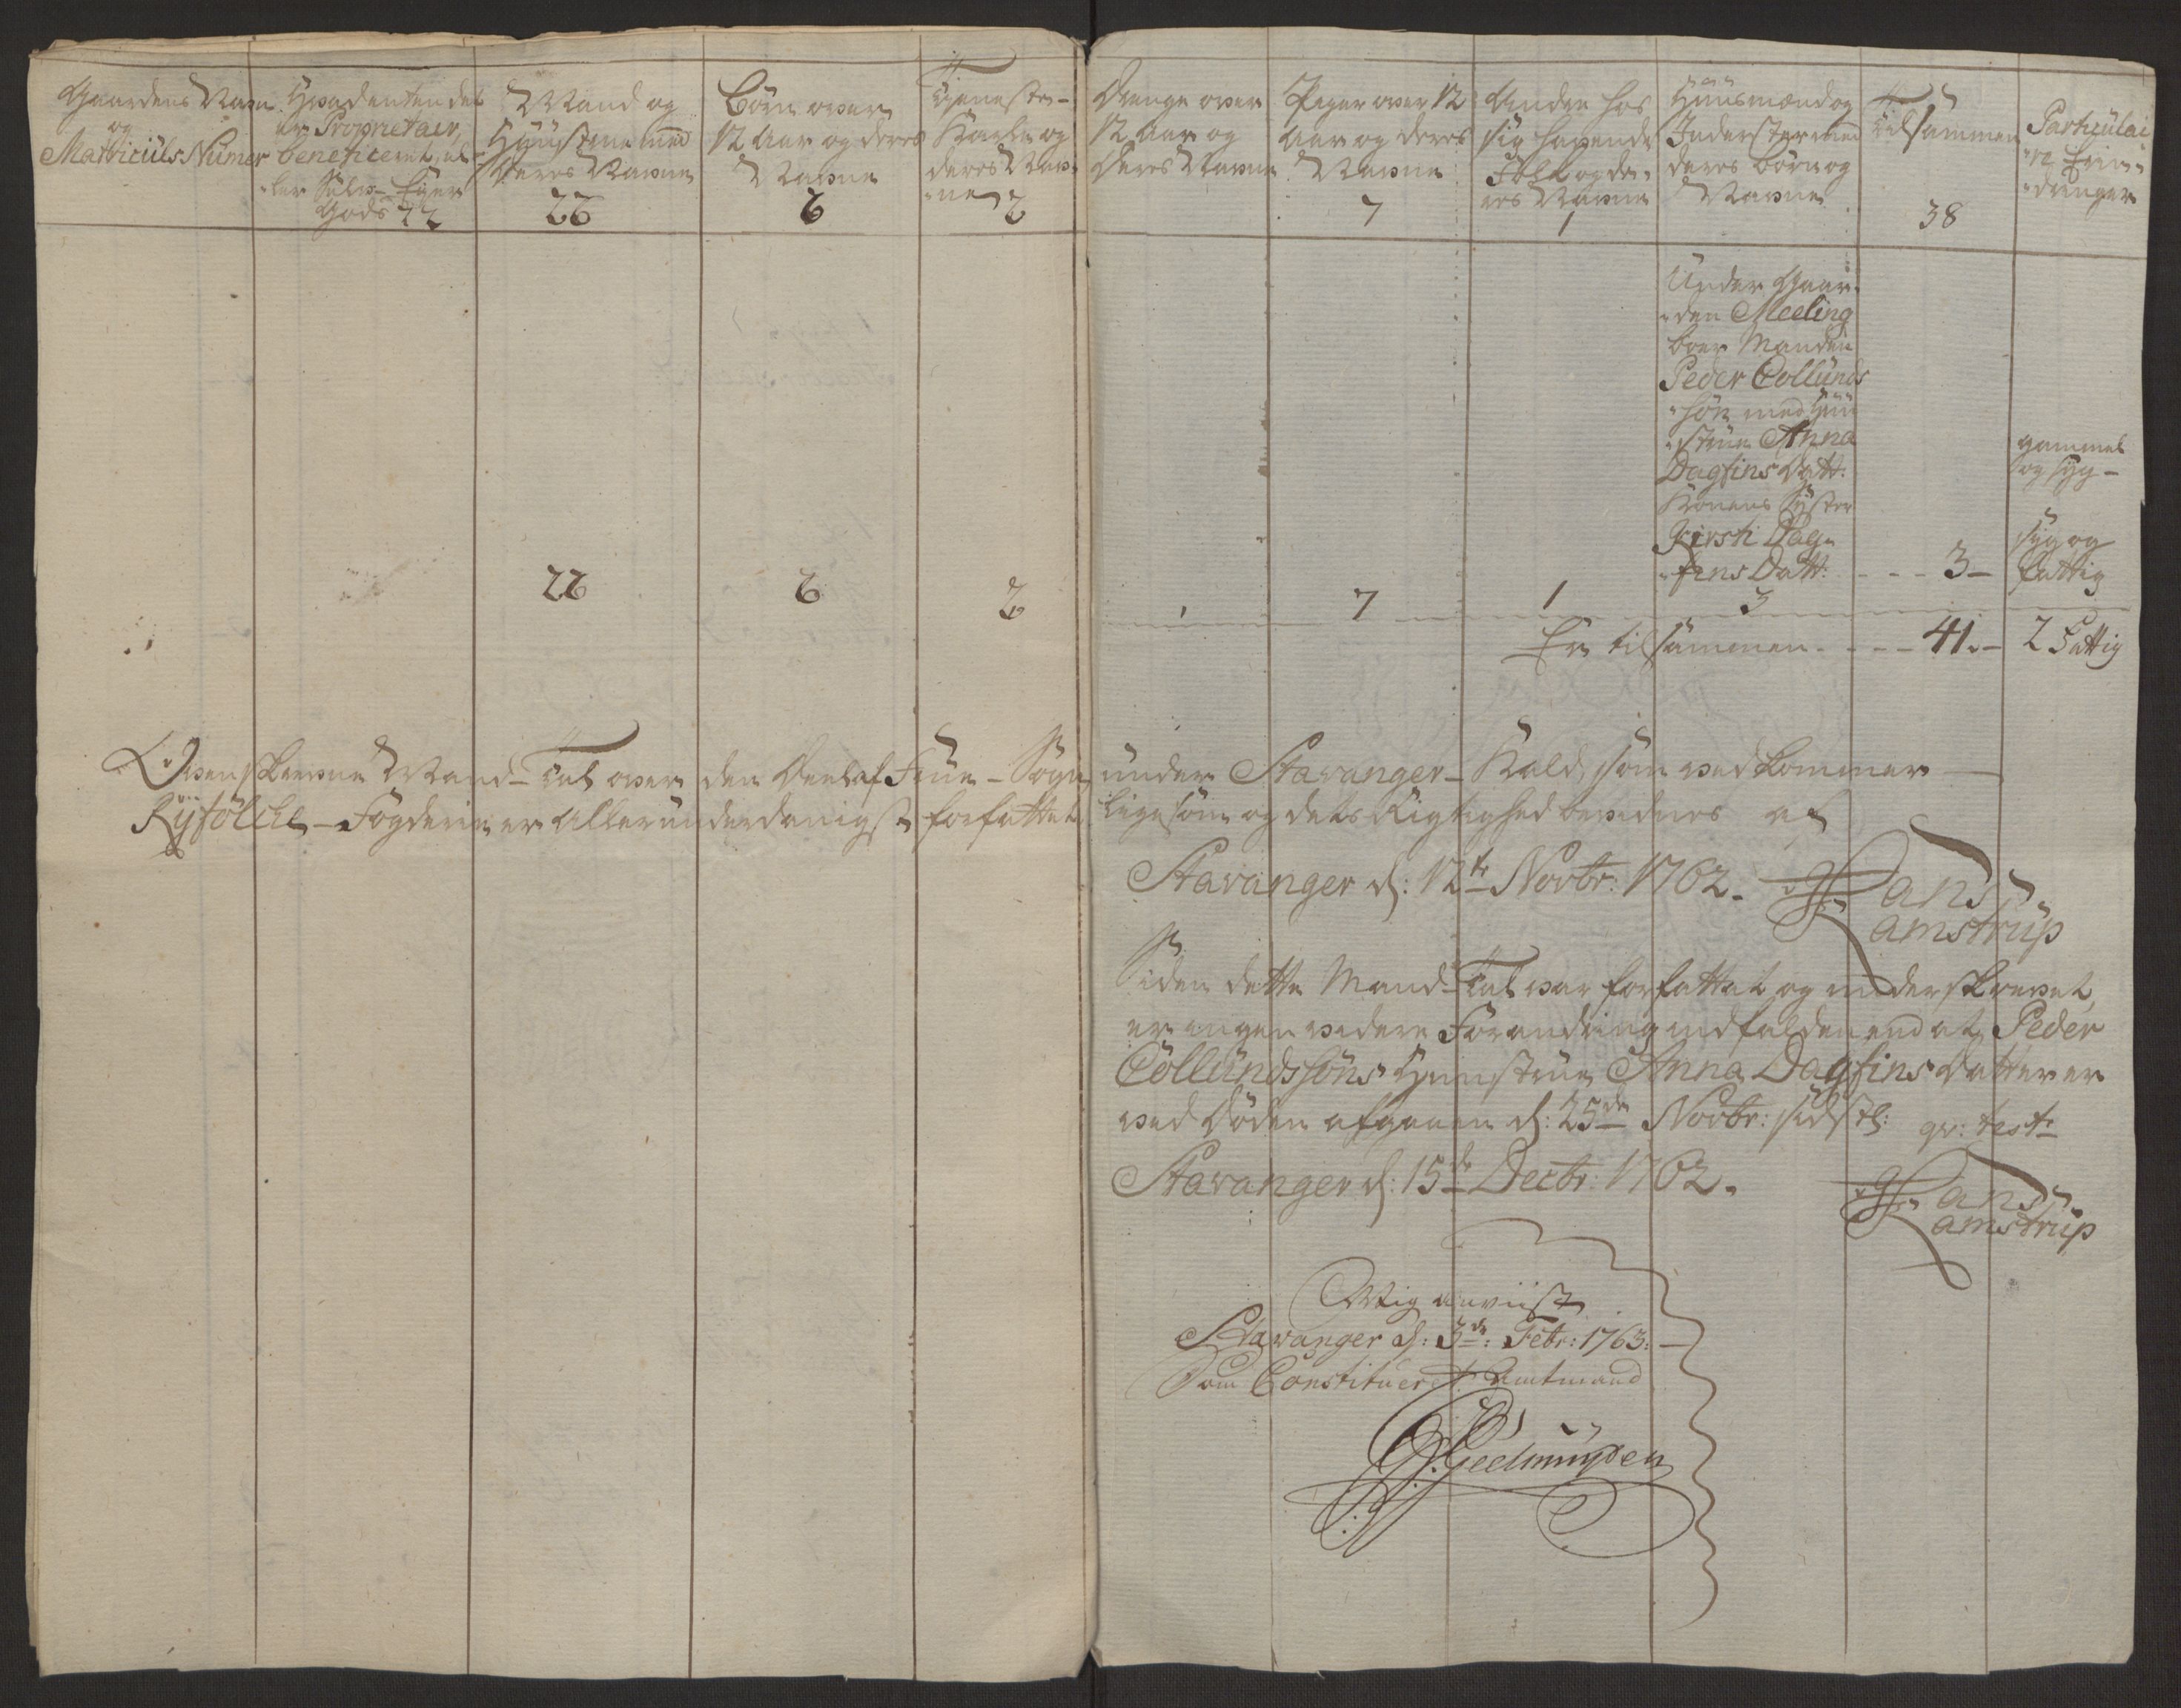 Gaardens Navn
og
Matriculs Numer
Hvad enten det
er Proprietair,
beneficeret, el-
ler Selv-Eyer
Gods
Mand og
Hüüstrue med
deres Navne
22
Börn over
12 Aar og deres
Navne
6
Tieneste-
Karle og
deres Nav-
ne 2
Drenge over
12 Aar og
deres Navne
Piger over 12
Aar og deres
Navne
7
Andre hos
sig havende
Folk og de-
res Navne
1
Hüüsmænd og
Inderster med
deres börn og
Navne
Tilsammen
38
Particulai-
re Erin-
dringer
Under Gaar-
den Meeling
boer Manden
Peder Collünds
sön med Hüü
strue Anna
Dagfins Datt:
gammel
og syg -
Konens Syster
Kirsti Dag-
fins Datt: - - - 3 -
syg og
fattig
22 6 2 7 1 3
Er tilsammen - - - - 41 - 2 Fattig
Ovenskrevne Mand-Tal over den Deel af Frue-Sogn under Stavanger-Kald, som vedkommer
Ryfölche-Fögderie er allerunderdanigst forfattet, ligesom og dets Rigtighed bevidnes af
Stavanger d: 12te Novbr: 1762.
Hans
Ramstrüp
Siden dette Mand-Tal var forfattet og underskrevet,
er ingen videre Forandring indfalden end at Peder
Collündssöns Hüüstrue Anna Dagfins Datter er
ved Döden afgaaen d: 25de Novbr: sidstl:
Stavanger d: 15de Decbr: 1762.
Hans
Ramstrüp
Mig anviist
Stavanger d: 3de: Febr: 1763.
Som Constitueret Amtmand
Geelmuyden